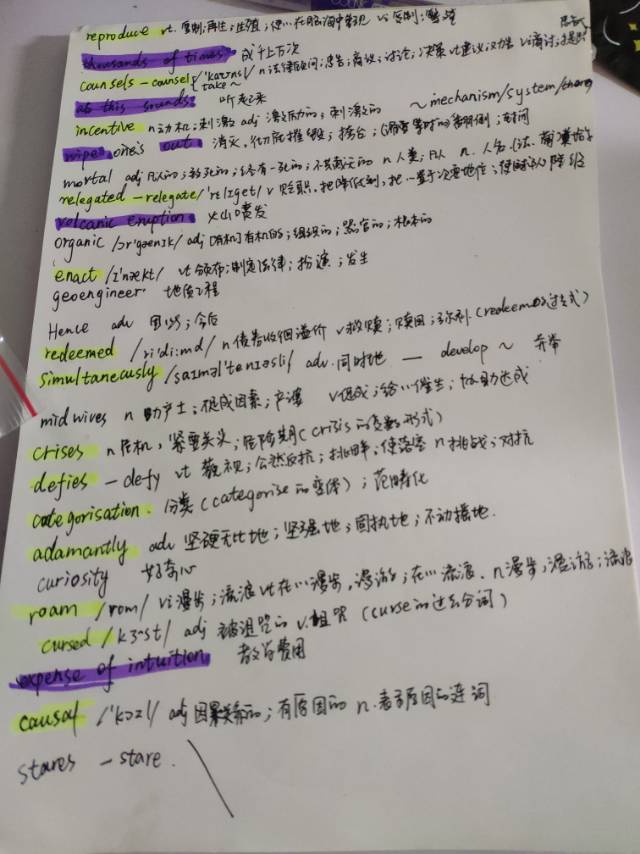 reproduce vt. 复制;再生;生殖;使…在脑海中重现 vi 复制;繁殖
thousands of times. 成千上万次
counsels - counsel /'kaʊnsl/ n 法律顾问;忠告;商议;讨论;决策 vt 建议;劝告 vi 商讨;提出忠告
take ~
as this sounds 听起来
incentive n 动机;刺激 adj 激励的;刺激的 ~mechanism/system/
wipe one's out 消灭,彻底摧毁;
mortal adj 凡人的;致死的;终有一死的; n 人类;凡人 n. 人名
relegated - relegate /'relɪget/ v 贬职,把降低到,把…置于次要地位;使 降级
volcanic eruption. 火山喷发
organic /ɔr'gænɪk/ adj [有机]有机的;组织的;器官的;根本的
enact /ɪ'nækt/ vt 颁布;制定法律;扮演;发生
geoengineer. 地质工程
Hence adv 因此;今后
redeemed /ri'di:md/ n 债券收回溢价 v 救赎;赎回;弥补(redeem的过去式)
simultaneously /saɪməl'tenɪəsli/ adv. 同时地 — develop ~ 并举
midwives n 助产士;促成因素;产婆 v 促成;给…催生;协助达成
crises n 危机,紧要关头;危险期(crisis的复数形式)
defies - defy vt 藐视;公然反抗;挑衅;使落空 n 挑战;对抗
categorisation. 分类(categorise的变体);范畴化
adamantly adv 坚硬无比地;坚强地;固执地;不动摇地.
curiosity 好奇心
roam /rom/ vi 漫步;流浪 vt 在…漫步,漫游;在…流浪. n 漫步;漫游;流浪
cursed /kɜ:st/ adj 被诅咒的 v.诅咒 (curse的过去分词)
expense of intuition 教学费用
causal /'kɔzl/ adj 因果关系的;有原因的 n.表示原因的连词
stares - stare.